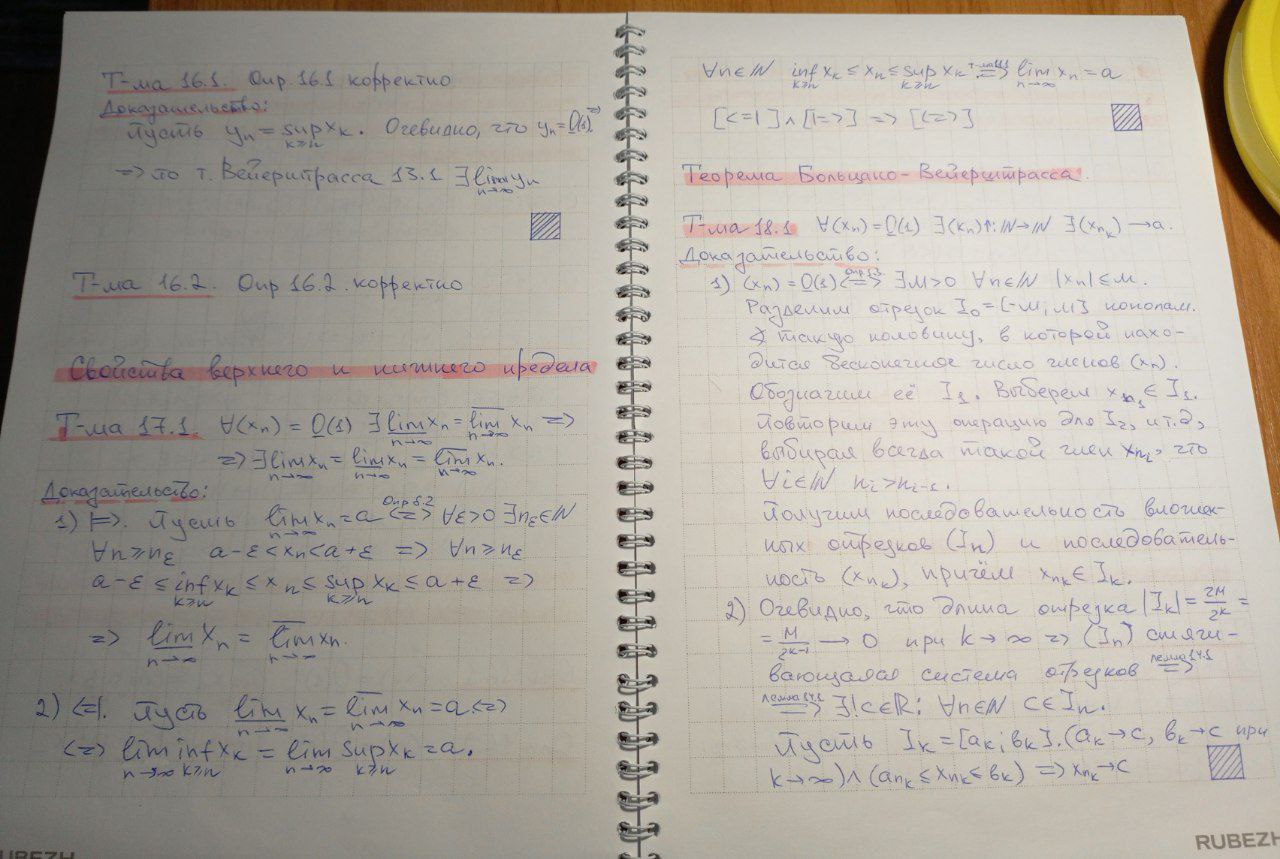 Т-ма 16.1. Опр 16.1 корректно
Доказательство:
Пусть yₙ = sup xₖ. Очевидно, что yₙ = O(1). ⇒
k≥n
⇒ по т. Вейерштрасса 13.1 ∃ lim yₙ
n→∞
Т-ма 16.2. Опр 16.2. корректно
Свойства верхнего и нижнего предела
Т-ма 17.1. ∀(xₙ) = O(1) ∃ lim xₙ = lim xₙ ⇒
n→∞
⇒ ∃ lim xₙ = lim xₙ = lim xₙ.
n→∞ n→∞ n→∞
Доказательство:
1) |⇒. Пусть lim xₙ = a ⇔ (Опр 6.2) ∀ε>0 ∃nε∈ℕ
n→∞
∀n≥nε a-ε<xₙ<a+ε ⇒ ∀n≥nε
a-ε ≤ inf xₖ ≤ xₙ ≤ sup xₖ ≤ a+ε ⇒
k≥n k≥n
⇒ lim xₙ = lim xₙ.
n→∞ n→∞
2) ⇐|. Пусть lim xₙ = lim xₙ = a. ⇔
n→∞ n→∞
⇔ lim inf xₖ = lim sup xₖ = a.
n→∞ k≥n n→∞ k≥n
∀n∈ℕ inf xₖ ≤ xₙ ≤ sup xₖ ⇒ lim xₙ = a
k≥n k≥n n→∞
[⇐|] ∧ [|⇒] ⇒ [⇔]
Теорема Больцано-Вейерштрасса.
Т-ма 18.1 ∀(xₙ) = O(1) ∃(kₙ)↑: ℕ→ℕ ∃(xₙₖ) → a.
Доказательство:
1) (xₙ) = O(1) ⇔ ∃M>0 ∀n∈ℕ |xₙ| ≤ M.
Разделим отрезок I₀ = [-M; M] пополам.
такую половину, в которой нахо-
дится бесконечное число членов (xₙ).
Обозначим её I₁. Выберем xₙ₁ ∈ I₁.
Повторим эту операцию для I₂, и т.д,
выбирая всегда такой член xₙᵢ, что
∀i∈ℕ nᵢ > nᵢ₋₁.
Получим последовательность вложен-
ных отрезков (Iₙ) и последователь-
ность (xₙₖ), причём xₙₖ ∈ Iₖ.
2) Очевидно, что длина отрезка |Iₖ| = 2M/2ᵏ =
= M/2ᵏ⁻¹ → 0 при k→∞ ⇒ (Iₙ) стяги-
вающаяся система отрезков ⇒ (лемма 14.1)
⇒ (лемма 14.1) ∃! c∈ℝ: ∀n∈ℕ c∈Iₙ.
Пусть Iₖ = [aₖ; bₖ]. (aₖ→c, bₖ→c при
k→∞) ∧ (aₙₖ ≤ xₙₖ ≤ bₖ) ⇒ xₙₖ→c
RUBEZH